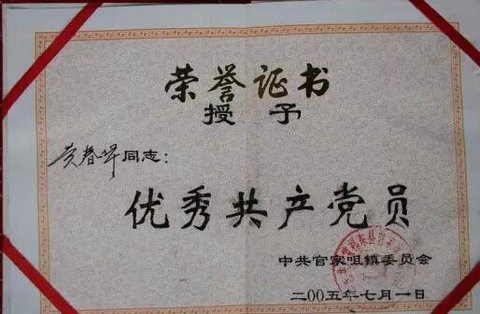 荣誉证书
授予
黄春华同志：
优秀共产党员
中共官家咀镇委员会
二00五年七月一日